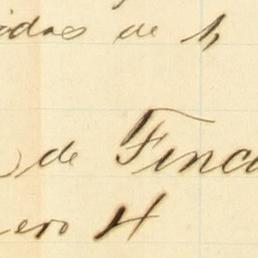 idas de h
de Finc
ero 4